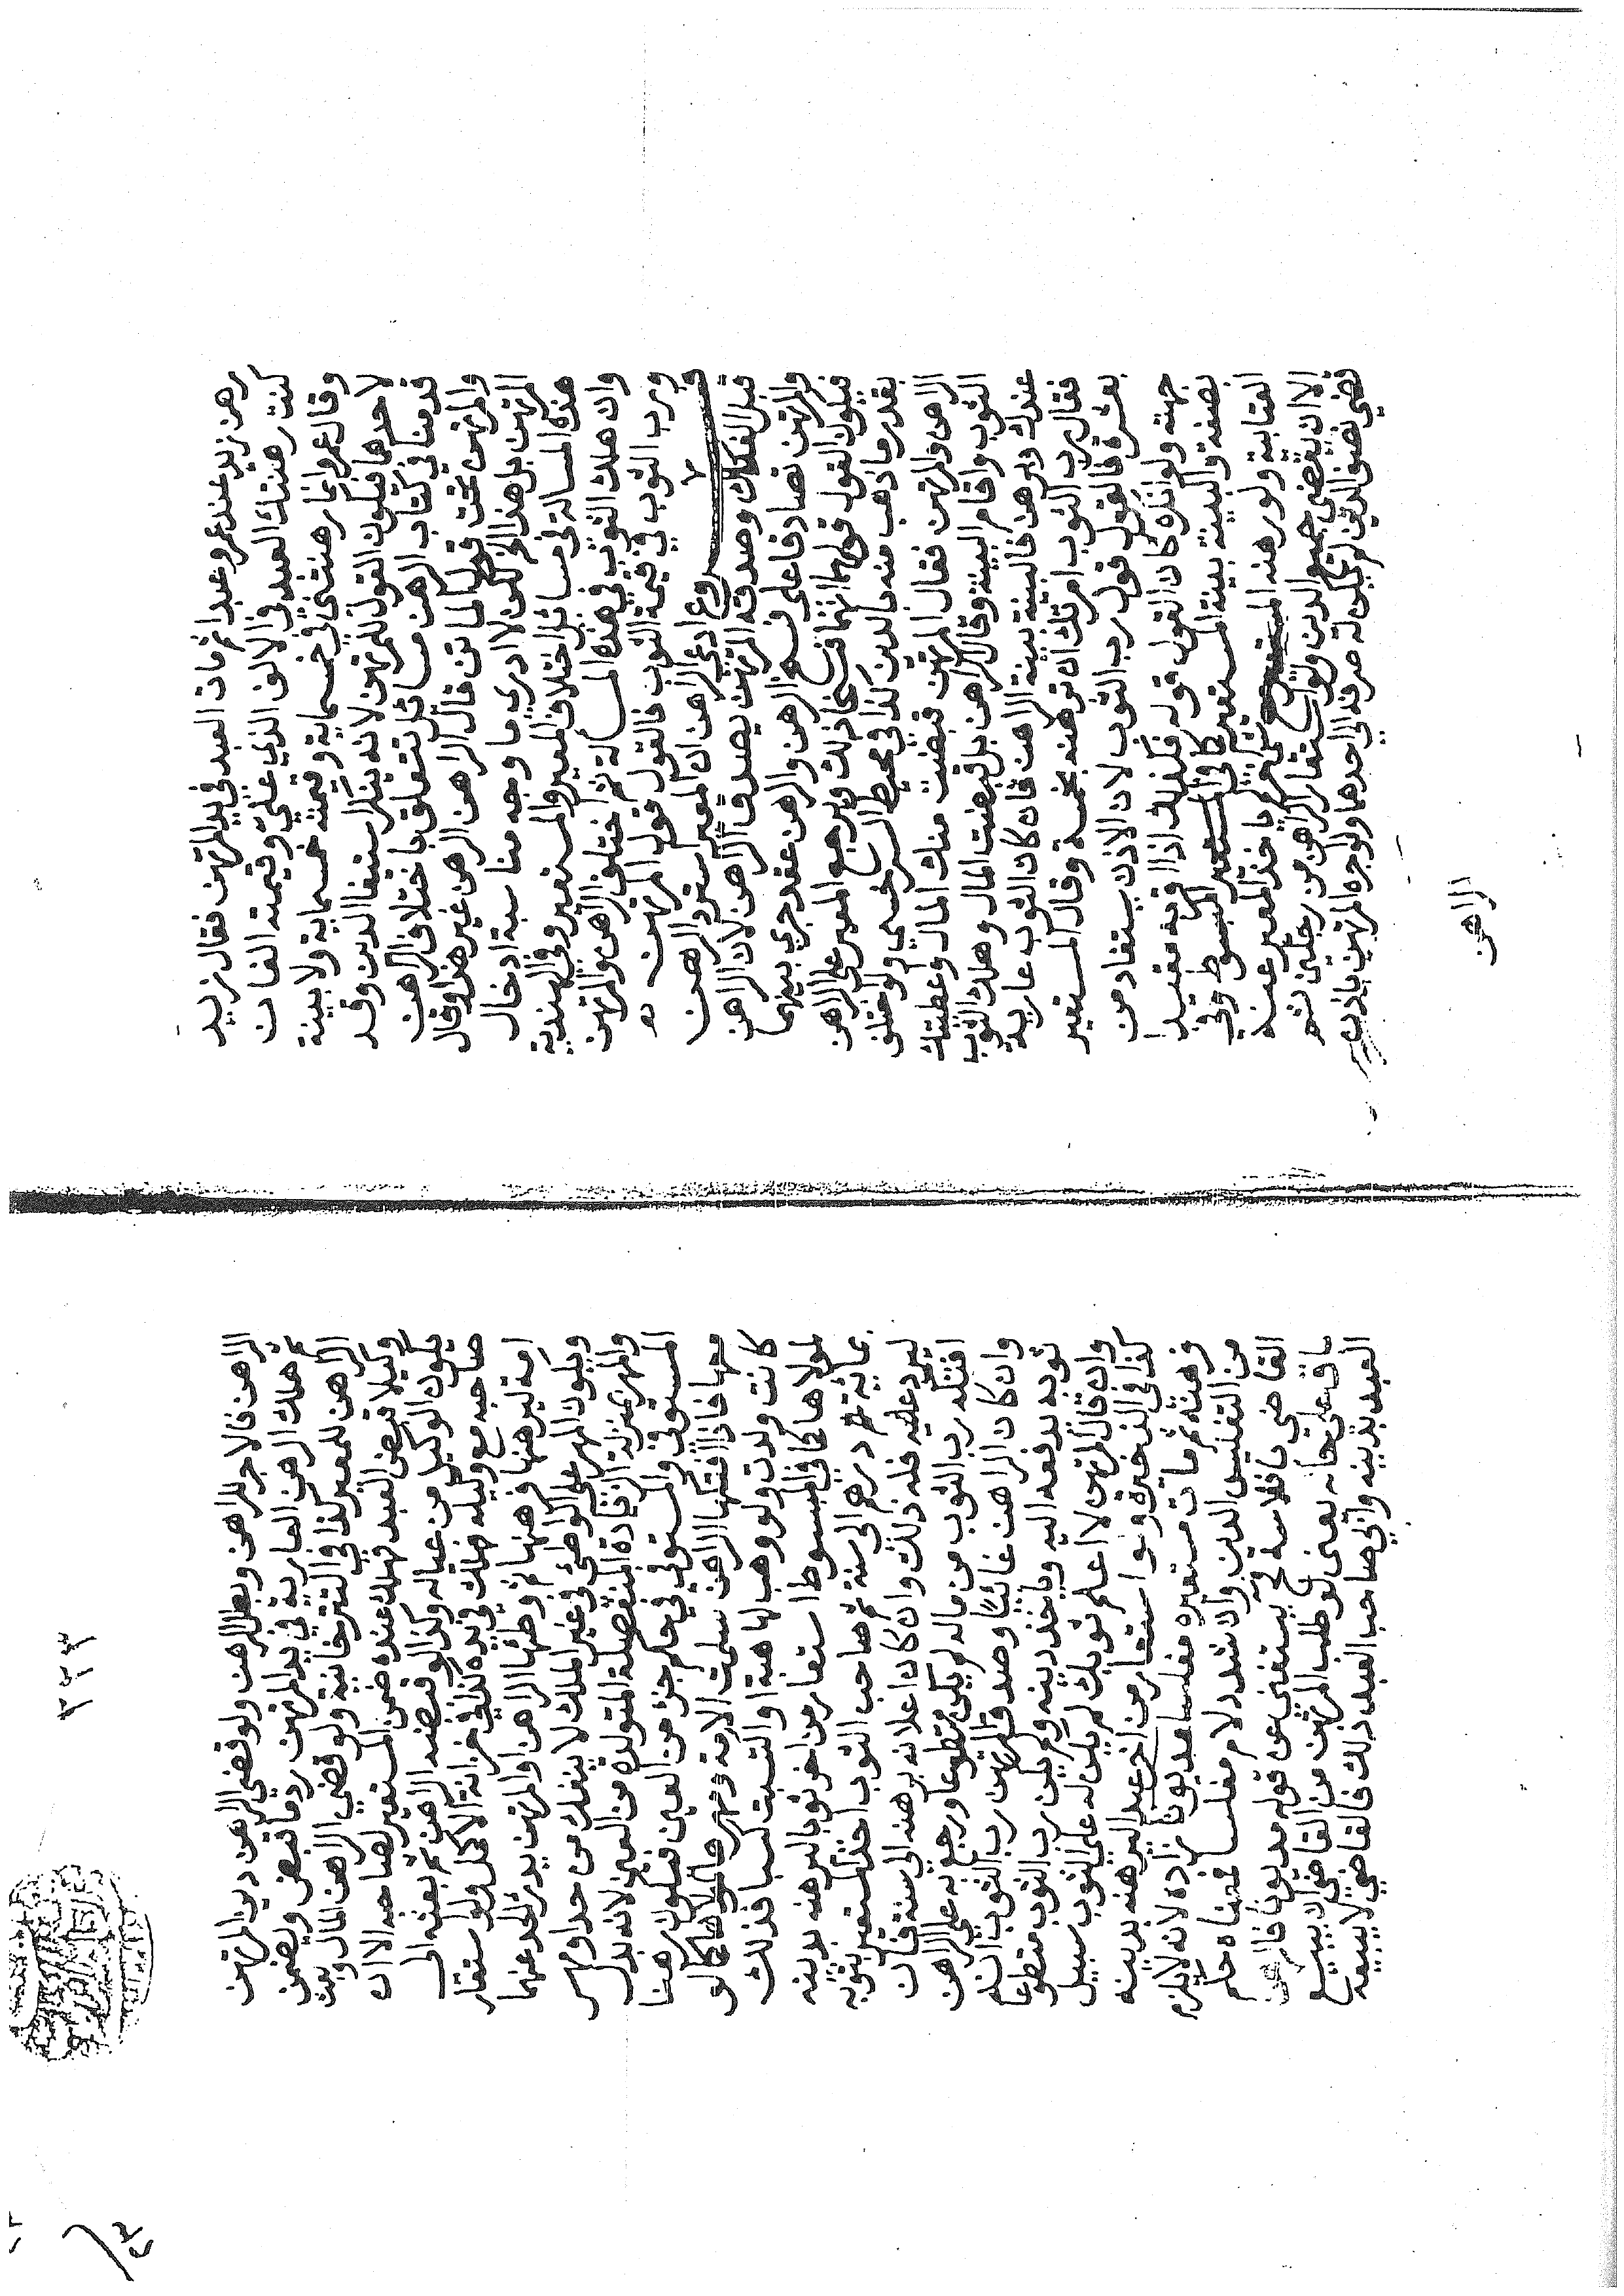 رهن زيد عند عمرو عبدا ثم مات العبد في يد المرتهن فقال زيد
كنت رهنتك العبد في الالف الذي علي وقيمته الفان
وقال عمرو انما رهنتني في خمسماية وقيمته خمسماية ولا بينة
لاحدهما فيكون القول للمرتهن لانه ينكر استيفا الدين وقد
قدمنا في كتاب الرهن مسائل تتعلق باختلاف الراهن
والمرتهن تحت قول الماتن قال الراهن الرهن غير هذا وقال
المرتهن بل هذا الخ لكن لا ادري ما وجه مناسبة ادخال
هذه المسالة في مسائل اختلاف المعير والمستعير وفي الهندية
وان هلك الثوب في هذه المسالة ثم اختلف الراهن والمرتهن
ورب الثوب في قيمة الثوب فالقول قول المرتهن
فروع ادعى الراهن ان المعير استرد الرهن
قبل الفكاك وصدقه المرتهن يصدق الراهن لان الراهن
والمرتهن تصادقا على فسخ الرهن والرهن عقد جرى بينهما
فيكون القول قولهما انهما فسخا ذلك ويرجع المعير على الراهن
بقدر ما ذهب منه بالدين كذا في محيط السرخسي ولو اختلف
الراهن والمرتهن فقال المرتهن قبضت منك المال واعطيتك
الثوب واقام البينة وقال الراهن بل قبضت المال وهلك الثوب
عندك وبرهن فالبينة بينة الراهن فان كان الثوب عارية
فقال رب الثوب امرتك ان ترهنه بخمسة وقال المستعير
بعشرة فالقول قول رب الثوب لان الاذن يستفاد من
جهته ولو انكره كان القول قوله فكذلك اذا اقر به مقيدا
بصفة والبينة بينة المستعير كما في المبسوط وفي
العتابية ولو رهنه المستعير ياخذ المعير عنه
الا ان يقضي جميع الدين ولو استعار الراهن من رجلين ثم
قضى نصف الدين لم يكن له صرفه الى احدهما ولو اجره المرتهن باذن
الراهن
٣٣٣
الراهن فالاجر للراهن وبطل الرهن ولو قضى الراهن دين المرتهن
ثم هلك الرهن العارية في يد المرتهن رد ما قبض ويضمن
الراهن للمعير كذا في التترخانية ولو قضى الراهن المال وبعث
وكيلا قبض العبد فهلك عنده ضمن المستعير لصاحبه الا ان
يكون الوكيل من عياله وكذا لو قبضه الراهن ثم بعثه الى
صاحبه مع وكيله فهلك في يده كذا في خزانة الاكمل ولو استعار
امة ليرهنها فرهنها ثم وطئها الراهن او المرتهن يدرئ الحد عنهما
ويكون المهر على الواطئ وغير الملك لا ينفك من حد او مهر
والمهر بمنزلة الزيادة المنفصلة المتولدة من العين لانه بدل
المستوفى والمستوفى في حكم جزء من العين فيكون رهنا
معها فاذا افتكها الراهن سلمت الامة ومهرها لمولاها كما لو
كانت ولدت ولو وهب لها هبة او اكتسبت كسبا فذلك
لمولاها كما في المبسوط استعار من اخر ثوبا ليرهنه بدينه
بمائة درهم الى سنة ثم صاحب الثوب اخذ المستعير بثوبه
ليرد عليه فله ذلك وان كان اعلانه يرهنه الى سنة فان
افتكه رب الثوب من ماله لم يكن متطوعا ورجع به على الراهن
وان كان الراهن غائبا وصدق المرتهن رب الثوب انه
ثوبه يدفعه اليه وياخذ دينه ولم يكن رب الثوب متطوعا
وان قال المرتهن لا اعلم ثوبك لم يكن له على الثوب سبيل
كذا في الذخيرة ولو استعار من اخر عبدا ليرهنه بدينه
فرهنه ثم مات مستعيره مفلسا مديونا زاده لانه لا يلزم
من التفليس الدين وان شدد لام مفلسا فمعناه حكم
القاضي بافلاسه يستغنى عن قوله مديونا فالرهن
باق على حاله يعني لو طلب المرتهن من القاضي ان يبيع
العبد بدينه وابى صاحب العبد ذلك فالقاضي لا يبيعه